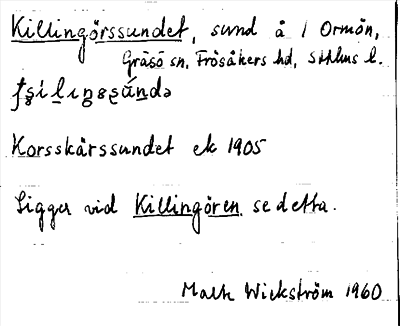 Killingörssundet, sund å / Ormön,
Gräsö sn, Frösåkers hd, Sthlms l.
Korsskärssundet ek 1905
Ligger vid Killingören. se detta.
Malte Wickström 1960